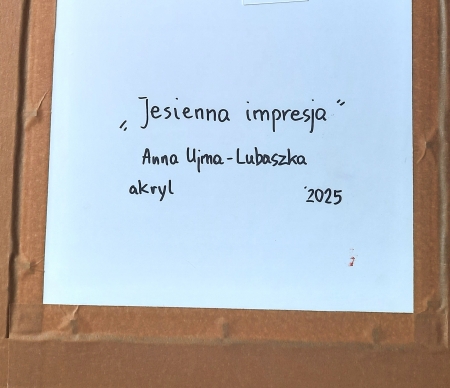 „Jesienna impresja”
Anna Ujma-Lubaszka
akryl 2025